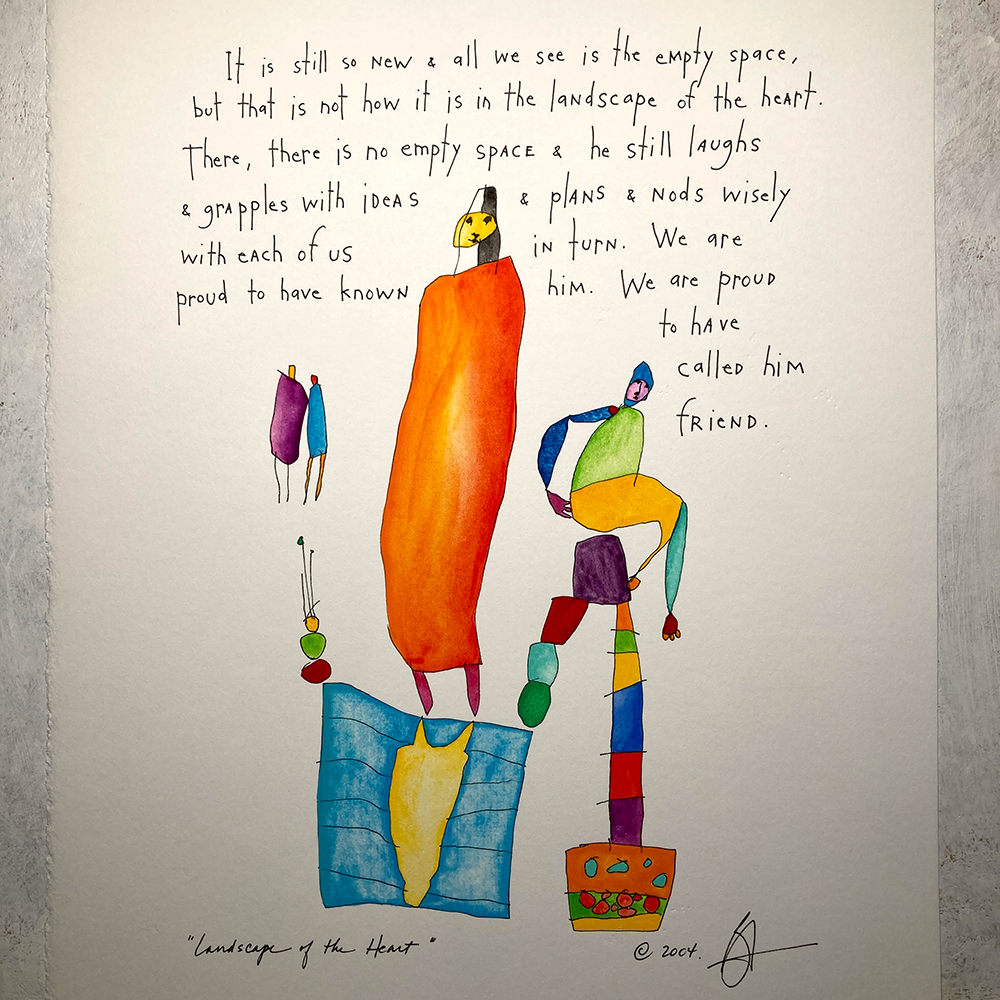 It is still so new & all we see is the empty space,
but that is not how it is in the landscape of the heart.
There, there is no empty space & he still laughs
& grapples with ideas & plans & nods wisely
with each of us in turn. We are
proud to have known him. We are proud
to have
called him
friend.
"Landscape of the Heart"
© 2004.